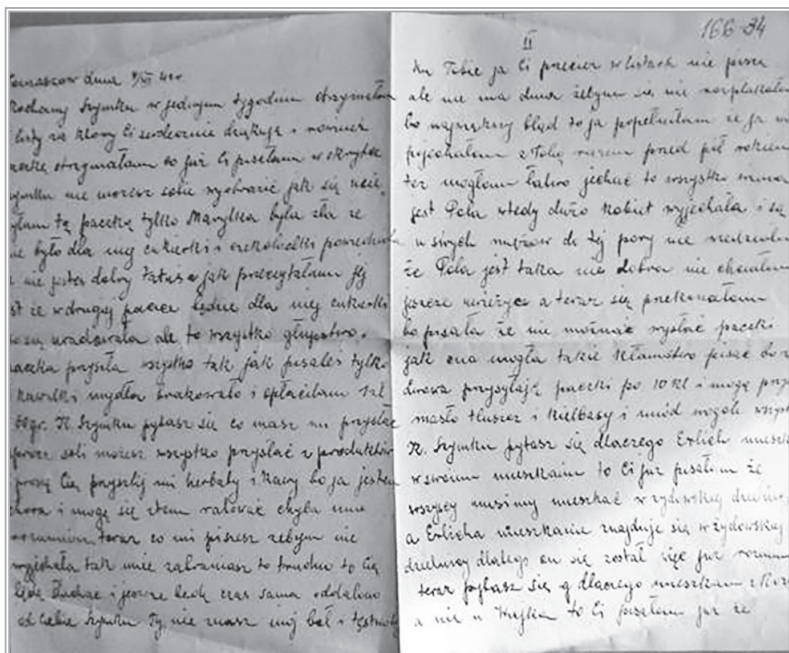 dnia 9/VI 41r
Kochany Szymku w jednym tygodniu otrzymałam
listy za który Ci serdecznie dziękuję i również
paczkę otrzymałam co już Ci pisałam w
Szymku nie możesz sobie wyobrazić jak się
tą paczką tylko Marylka była zła że
nie było dla niej cukierki i czekoladki powiedziała
nie jesteś dobry tatuś a jak przeczytałam jej
list że w drugiej paczce będzie dla niej cukierki
to się uradowała ale to wszystko głupstwo.
paczka przyszła wszystko tak jak pisałeś tylko
kawałki mydła brakowało i opłaciłam 1zł
60gr. K. Szymku pytasz się co masz mi przysłać
oprócz soli możesz wszystko przysłać z produktów
proszę Cię przyślij mi herbaty i kawy bo ja jestem
chora i mogę się ztem ratować chyba mnie
rozumiesz, teraz co mi piszesz żebym nie
wyjechała tak mnie zabraniasz to trudno to Cię
będę słuchać i jeszcze będę czas sama oddalona
od Ciebie Szymku Ty, nie znasz mój ból i tęsknotę
166-34
II
ku Tobie ja Ci przecież w listach nie piszę
ale nie ma dnia żebym się nie rozpłakała
bo największy błąd to ja popełniłam że ja nie
pojechałam z Tobą razem przed pół rokiem
też mogłam łatwo jechać to wszystko
jest Pola wtedy dużo kobiet wyjechała i są
u swych mężów do tej pory nie wiedziałam
że Pola jest taka nie dobra nie chciałam
jeszcze wierzyć a teraz się przekonałam
bo pisała że nie można wysłać paczki
jak ona mogła takie kłamstwo pisać bo z
przysyłają paczki po 10 Kl i mogą
masło tłuszcz i kiełbasy i miód wogóle
K. Szymku pytasz się dlaczego Erlich
w swoim mieszkaniu to Ci już pisałam że
wszyscy musimy mieszkać w żydowskiej dzielnicy
a Erlicha mieszkanie znajduje się w żydowskiej
dzielnicy dlatego on się został więc już
teraz pytasz się dlaczego mieszkam z
a nie u to Ci pisałam już że